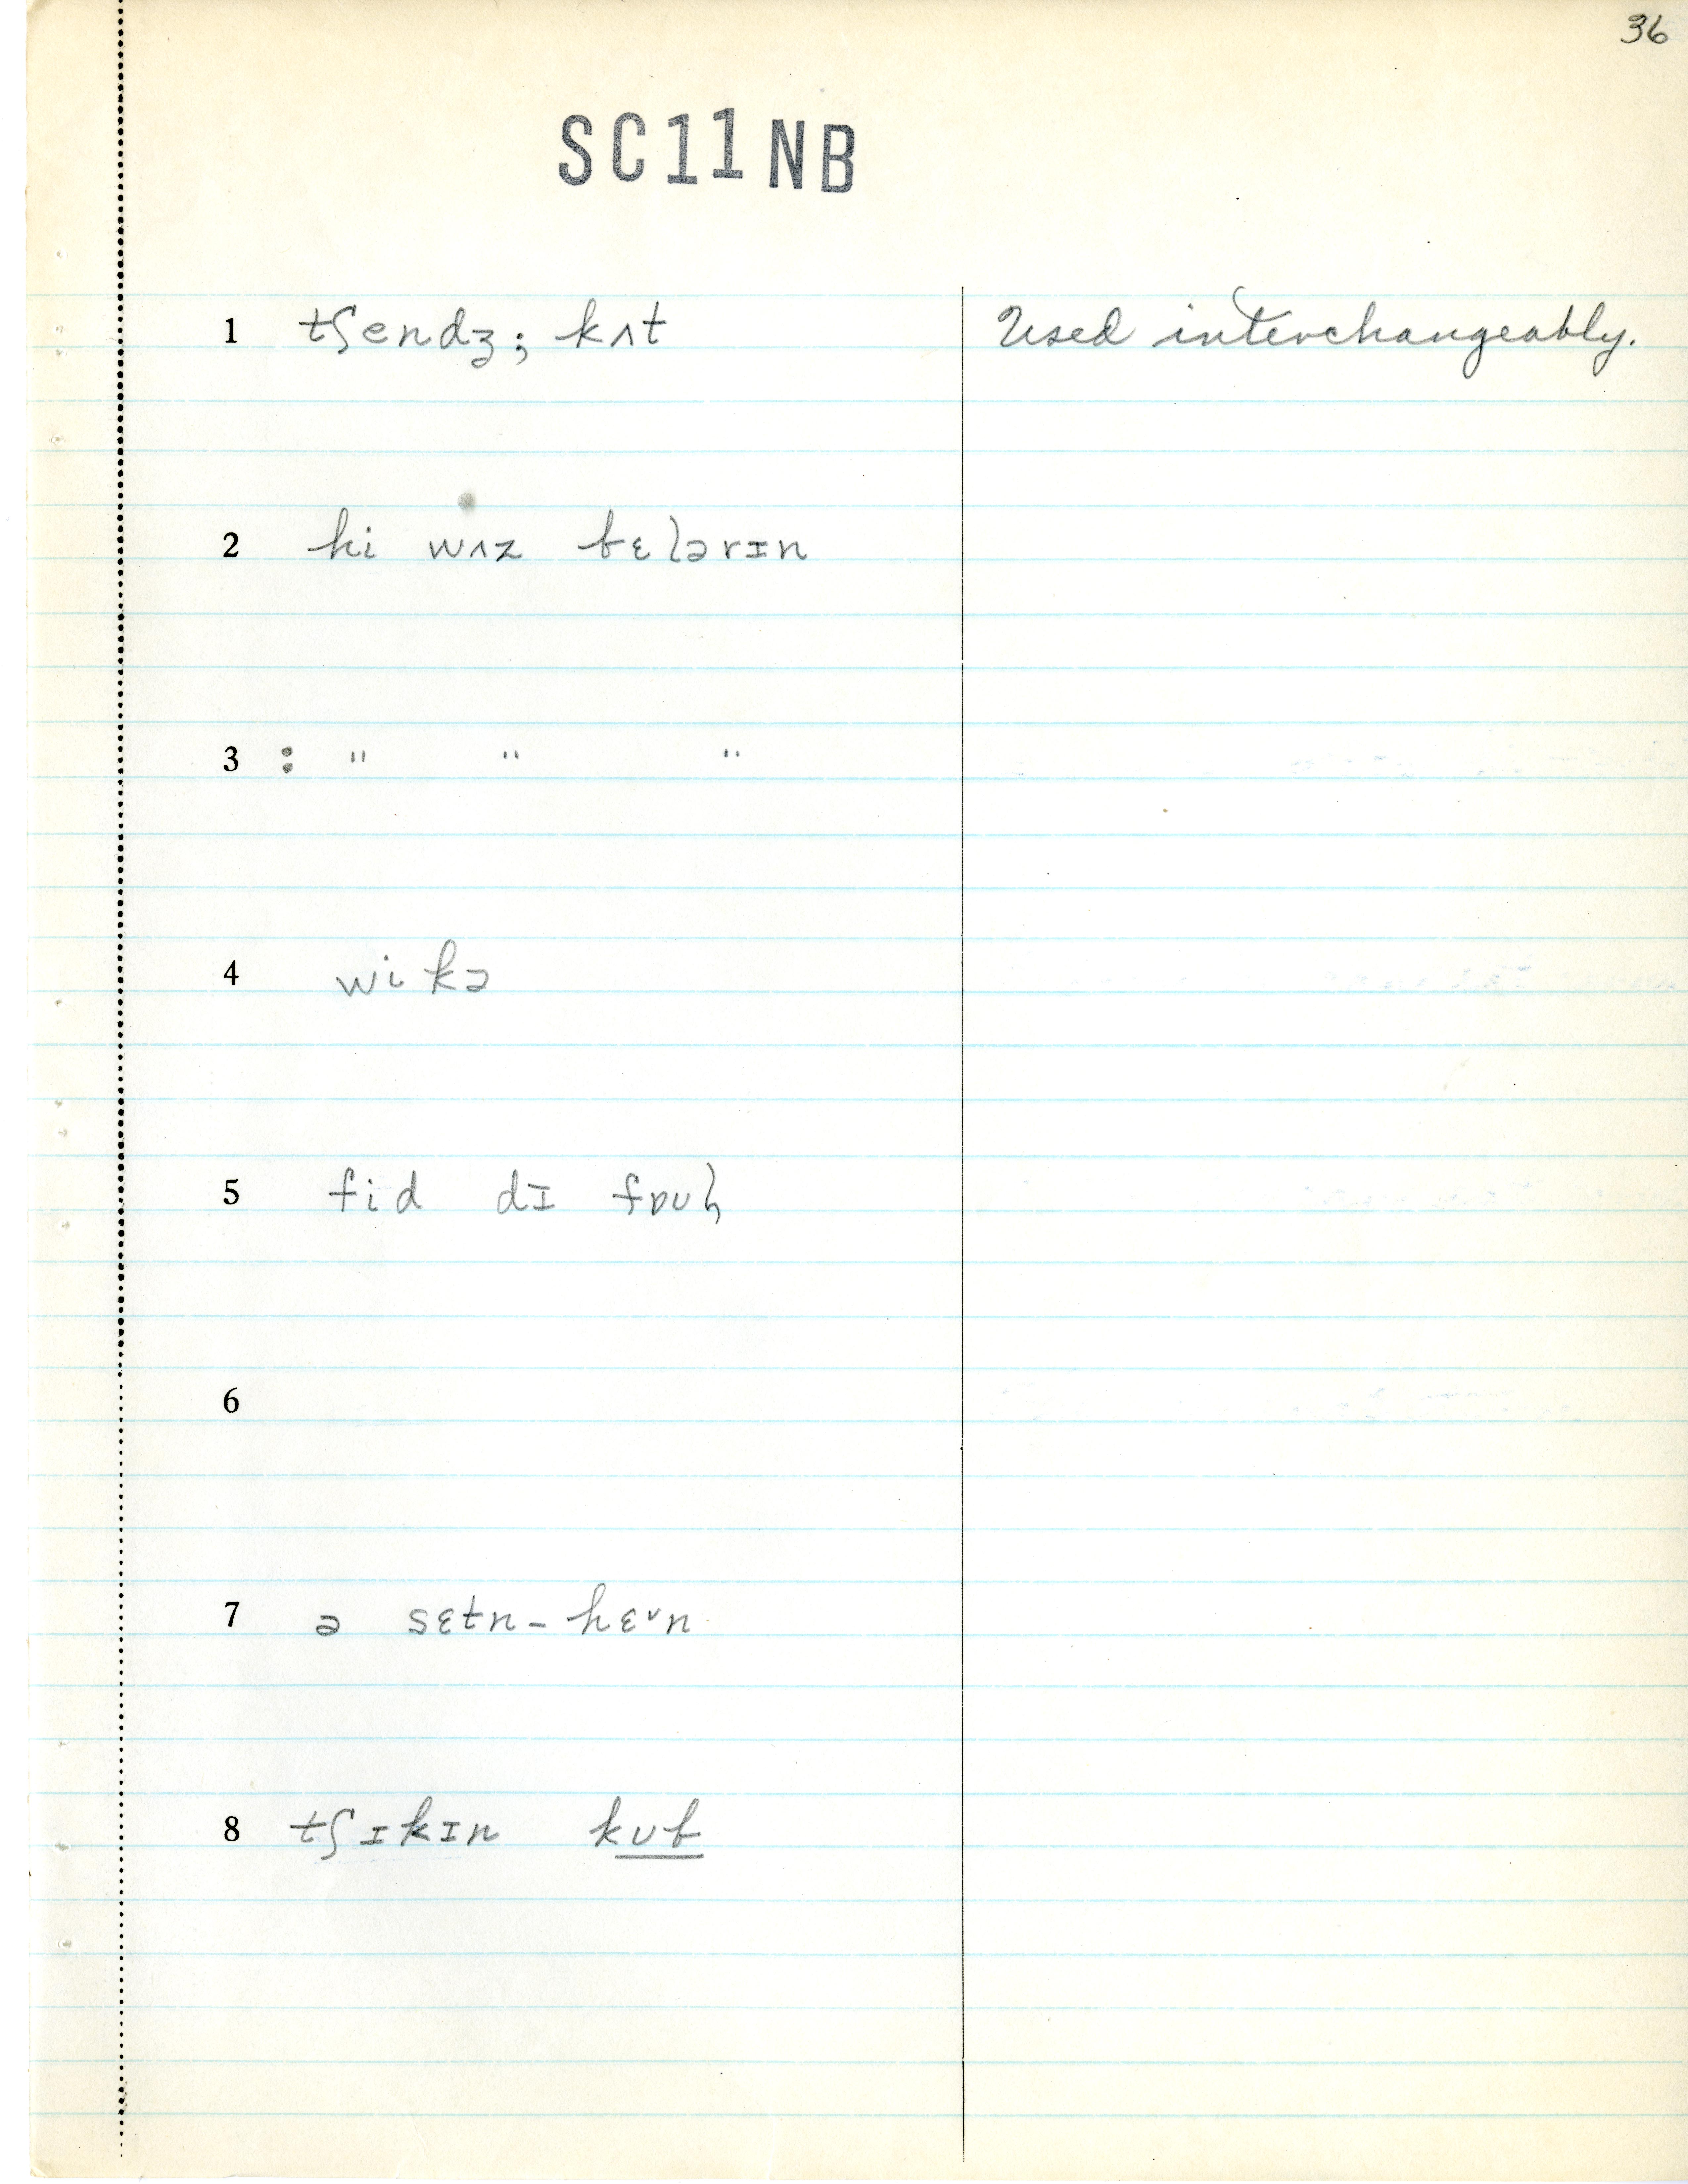 36
SC11NB
1 tʃendʒ; kʌt Used interchangeably.
2 hi wʌz bɛlərɪn
3 : " " "
4 wikə
5 fid dɪ fɒʊl̩
6
7 ə sɛtn-hɛᵛn
8 tʃɪkɪn kʊb